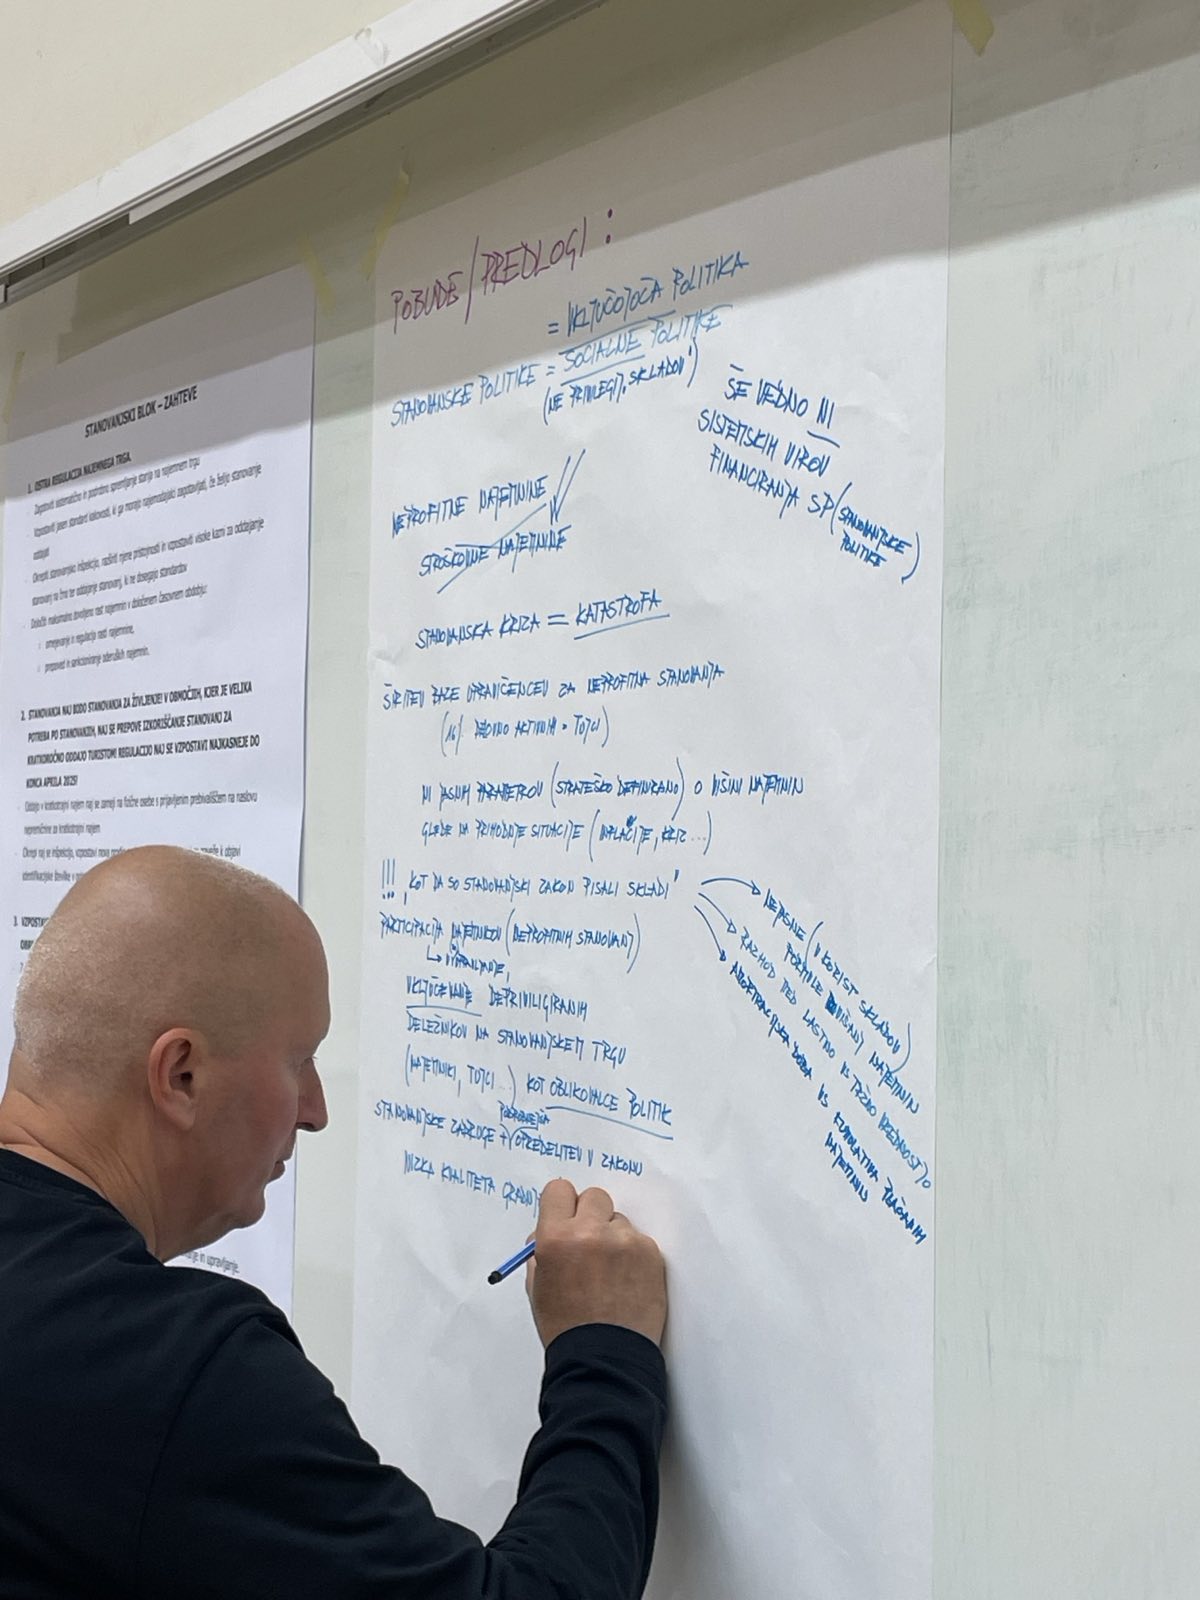 STANOVANJSKI BLOK – ZAHTEVE
1. OSTRA REGULACIJA NAJEMNEGA TRGA
Zagotoviti sistematično in podrobno spremljanje stanja na najemnem trgu
Vzpostaviti jasen standard kakovosti, ki ga morajo najemodajalci zagotavljati, če želijo stanovanje
oddajati
Okrepiti stanovanjsko inšpekcijo, razširiti njene pristojnosti in vzpostaviti visoke kazni za oddajanje
stanovanj na črno ter oddajanje stanovanj, ki ne dosegajo standardov
Določiti maksimalno dovoljeno rast najemnin v določenem časovnem obdobju:
omejevanje in regulacija rasti najemnine,
prepoved in sankcioniranje oderuških najemnin.
2. STANOVANJA NAJ BODO STANOVANJA ZA ŽIVLJENJE! V OBMOČJIH, KJER JE VELIKA
POTREBA PO STANOVANJIH, NAJ SE PREPOVE IZKORIŠČANJE STANOVANJ ZA
KRATKOROČNO ODDAJO TURISTOM! REGULACIJO NAJ SE VZPOSTAVI NAJKASNEJE DO
KONCA APRILA 2025!
Oddajo v kratkotrajni najem naj se zameji na fizične osebe s prijavljenim prebivališčem na naslovu
nepremičnine za kratkotrajni najem
Okrepi naj se inšpekcijo, vzpostavi nova k objavi
identifikacijske številke v
3. VZPOSTAV
in upravljanje.
POBUDE/PREDLOGI:
= VKLJUČUJOČA POLITIKA
STANOVANJSKE POLITIKE = SOCIALNE POLITIKE
(NE PRIVILEGIJ. SKLADOV')
ŠE VEDNO NI
SISTEMSKIH VIROV
FINANCIRANJA SP (STANOVANJSKE
POLITIKE)
NEPROFITNE NAJEMNINE
STROŠKOVNE NAJEMNINE
STANOVANJSKA KRIZA = KATASTROFA
ŠIRITEV BAZE UPRAVIČENCEV ZA NEPROFITNA STANOVANJA
(16% DELOVNO AKTIVNIH = TUJCI)
NI JASNIH PARAMETROV (STRATEŠKO DEFINIRANO) O VIŠINI NAJEMNIN
GLEDE NA PRIHODNJE SITUACIJE (INFLACIJE, KRIZ ...)
!!! "KOT DA SO STANOVANJSKI ZAKON PISALI SKLADI"
NEJASNE (V KORIST SKLADOV)
FORMULE VIŠANJ NAJEMNIN
RAZHOD MED LASTNO VS TRŽNO VREDNOSTJO
AMORTIZACIJSKA DOBA VS KUMULATIVA PLAČANIH
NAJEMNIN
PARTICIPACIJA NAJEMNIKOV (NEPROFITNIH STANOVANJ)
↳ V UPRAVLJANJE,
VKLJUČEVANJE DEPRIVILIGIRANIH
DELEŽNIKOV NA STANOVANJSKEM TRGU
(NAJEMNIKI, TUJCI ...) KOT OBLIKOVALCE POLITIK
PODROBNEJŠA
STANOVANJSKE ZADRUGE + OPREDELITEV V ZAKONU
NIZKA KVALITETA GRADNJ